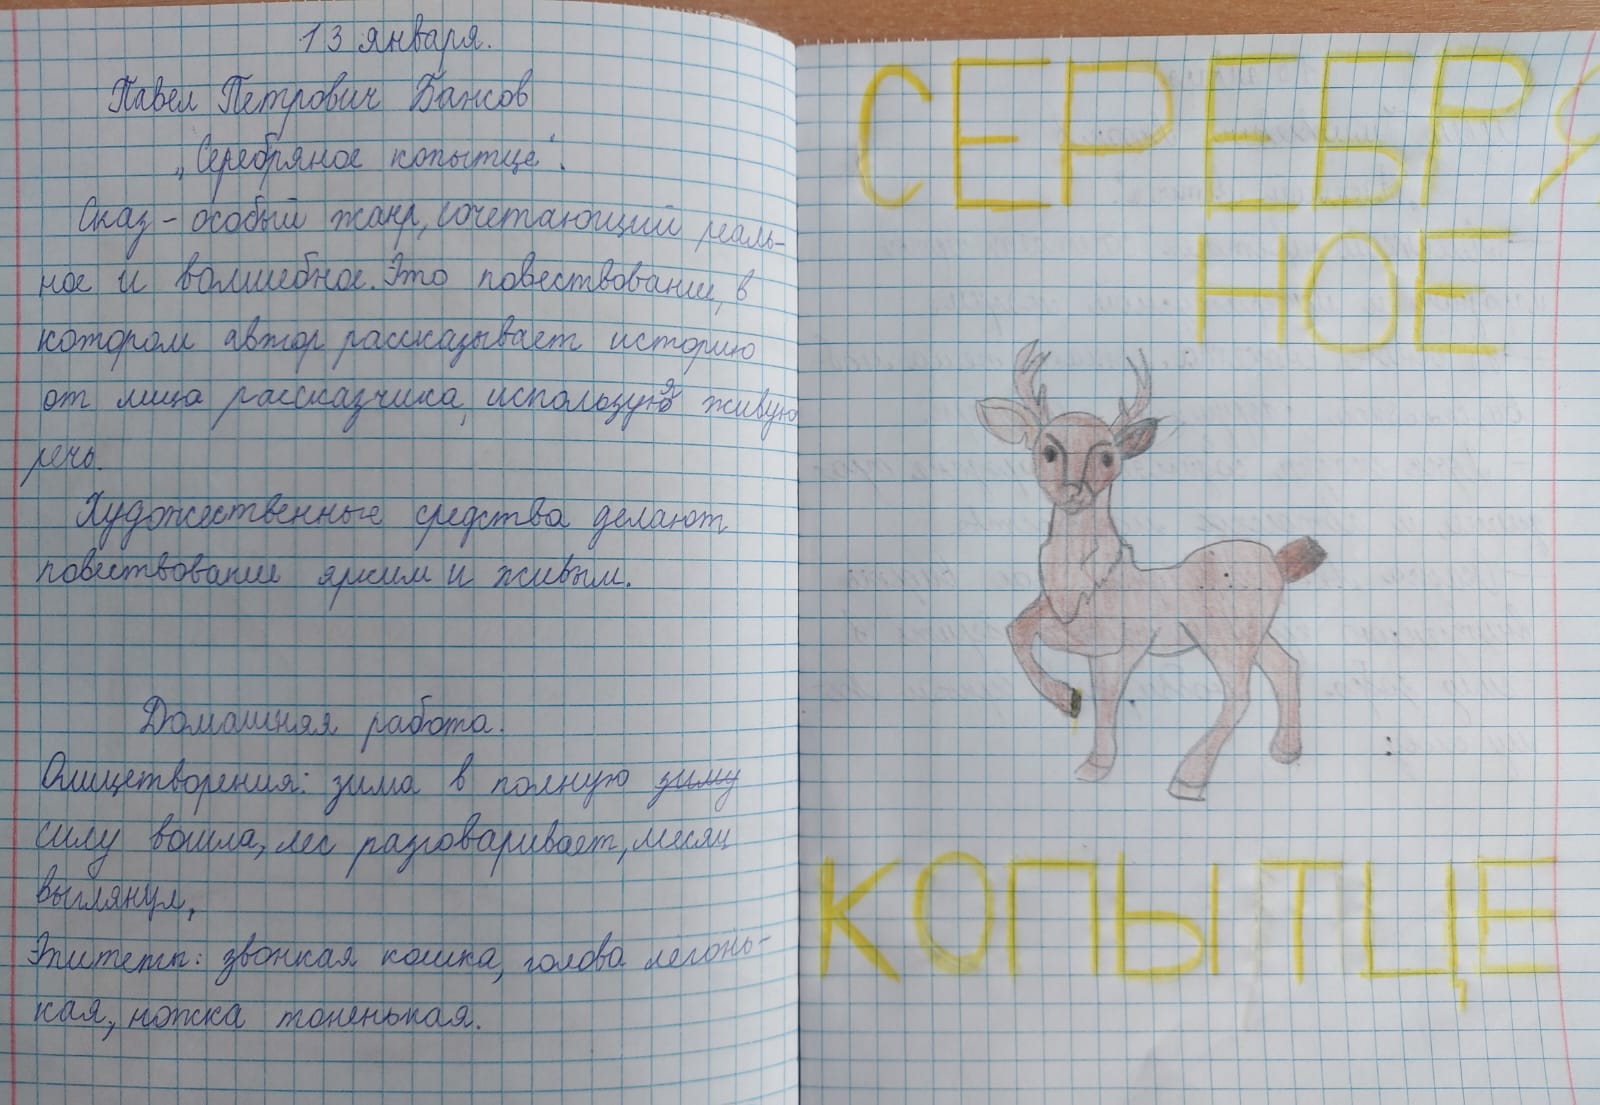 13 января.
Павел Петрович Бажов
„Серебряное копытце".
Сказ - особый жанр, сочетающий реаль-
ное и волшебное. Это повествование, в
котором автор рассказывает историю
от лица рассказчика, используя живую
речь.
Художественные средства делают
повествование ярким и живым.
Домашняя работа.
Олицетворения: зима в полную зиму
силу вошла, лес разговаривает, месяц
выглянул,
Эпитеты: звонкая кошка, голова легонь-
кая, ножка тоненькая.
СЕРЕБРЯ
НОЕ
КОПЫТЦЕ